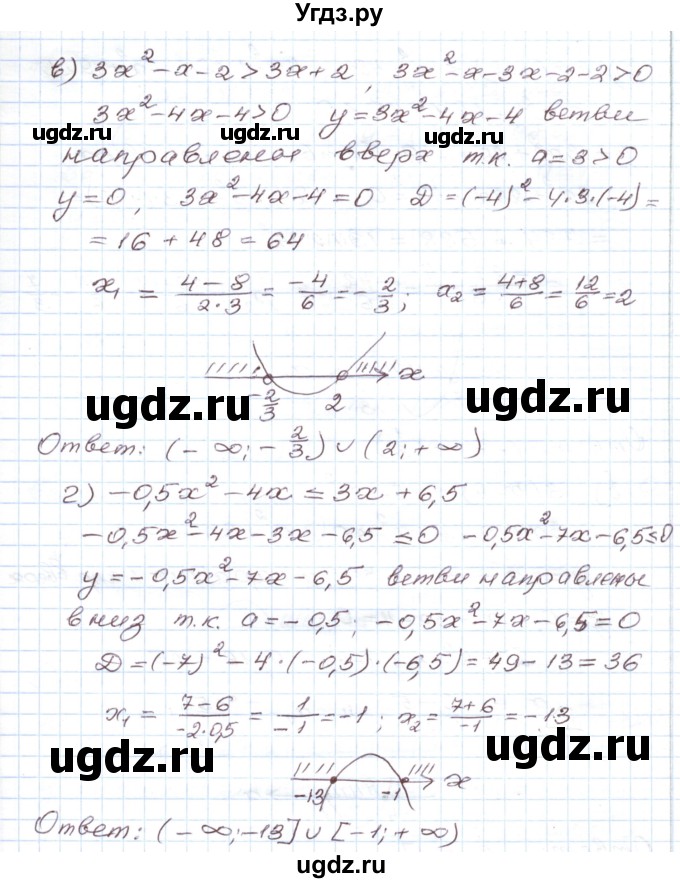 Угдз.ру
в) 3x² - x - 2 > 3x + 2, 3x² - x - 3x - 2 - 2 > 0
3x² - 4x - 4 > 0 y = 3x² - 4x - 4 ветви
ugdz.ru ugdz.ru ugdz.ru
направлены вверх т.к. a = 3 > 0
y = 0, 3x² - 4x - 4 = 0 D = (-4)² - 4·3·(-4) =
= 16 + 48 = 64
x₁ = (4 - 8)/(2·3) = -4/6 = -2/3; x₂ = (4+8)/6 = 12/6 = 2
ugdz.ru ugdz.ru ugdz.ru
x
-2/3 2
ugdz.ru ugdz.ru
Ответ: (-∞; -2/3) ∪ (2; +∞)
г) -0,5x² - 4x ≤ 3x + 6,5
-0,5x² - 4x - 3x - 6,5 ≤ 0 -0,5x² - 7x - 6,5 ≤ 0
ugdz.ru ugdz.ru ugdz.ru
y = -0,5x² - 7x - 6,5 ветви направлены
вниз т.к. a = -0,5; -0,5x² - 7x - 6,5 = 0
D = (-7)² - 4·(-0,5)·(-6,5) = 49 - 13 = 36
x₁ = (7 - 6)/(-2·0,5) = 1/-1 = -1; x₂ = (7+6)/-1 = -13
ugdz.ru ugdz.ru
-13 -1 x
Ответ: (-∞; -13] ∪ [-1; +∞)
ugdz.ru